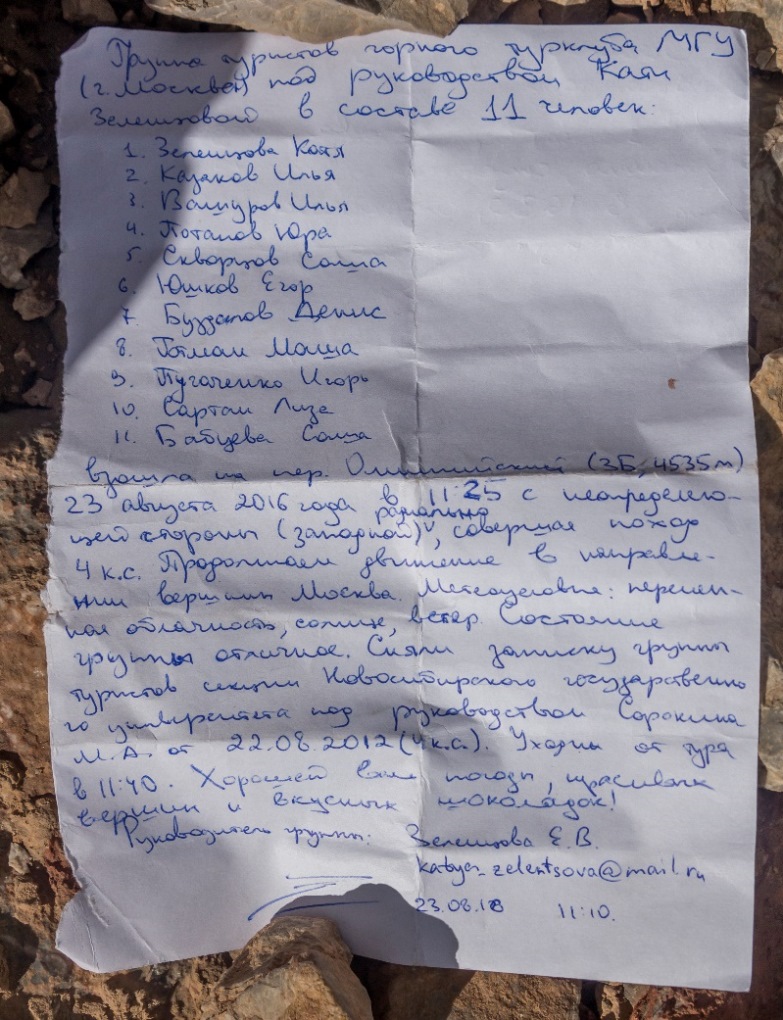 Группа туристов горного турклуба МГУ
(г. Москва) под руководством Кати
Зеленцовой в составе 11 человек:
1. Зеленцова Катя
2. Казаков Илья
3. Вашуров Илья
4. Потапов Юра
5. Скворцов Саша
6. Юшков Егор
7. Буздалов Денис
8. Готман Маша
9. Пугаченко Игорь
10. Сартан Лиза
11. Бабцева Саша
взошла на пер. Олимпийский (3Б, 4535м)
23 августа 2016 года в 11:25 с неопределяю-
радиально
щей стороны (западной), совершая поход
4 к.с. Продолжаем движение в направле-
нии вершины Москва. Метеоусловия: перемен-
ная облачность, солнце, ветер. Состояние
группы отличное. Сняли записку группы
туристов секции Новосибирского государственно
го университета под руководством Сорокина
М.А. от 22.08.2012 (4 к.с.). Уходим от тура
в 11:40. Хорошей вам погоды, красивых
вершин и вкусных шоколадок!
Руководитель группы: Зеленцова Е.В.
katya_zelentsova@mail.ru
23.08.16 11:10.